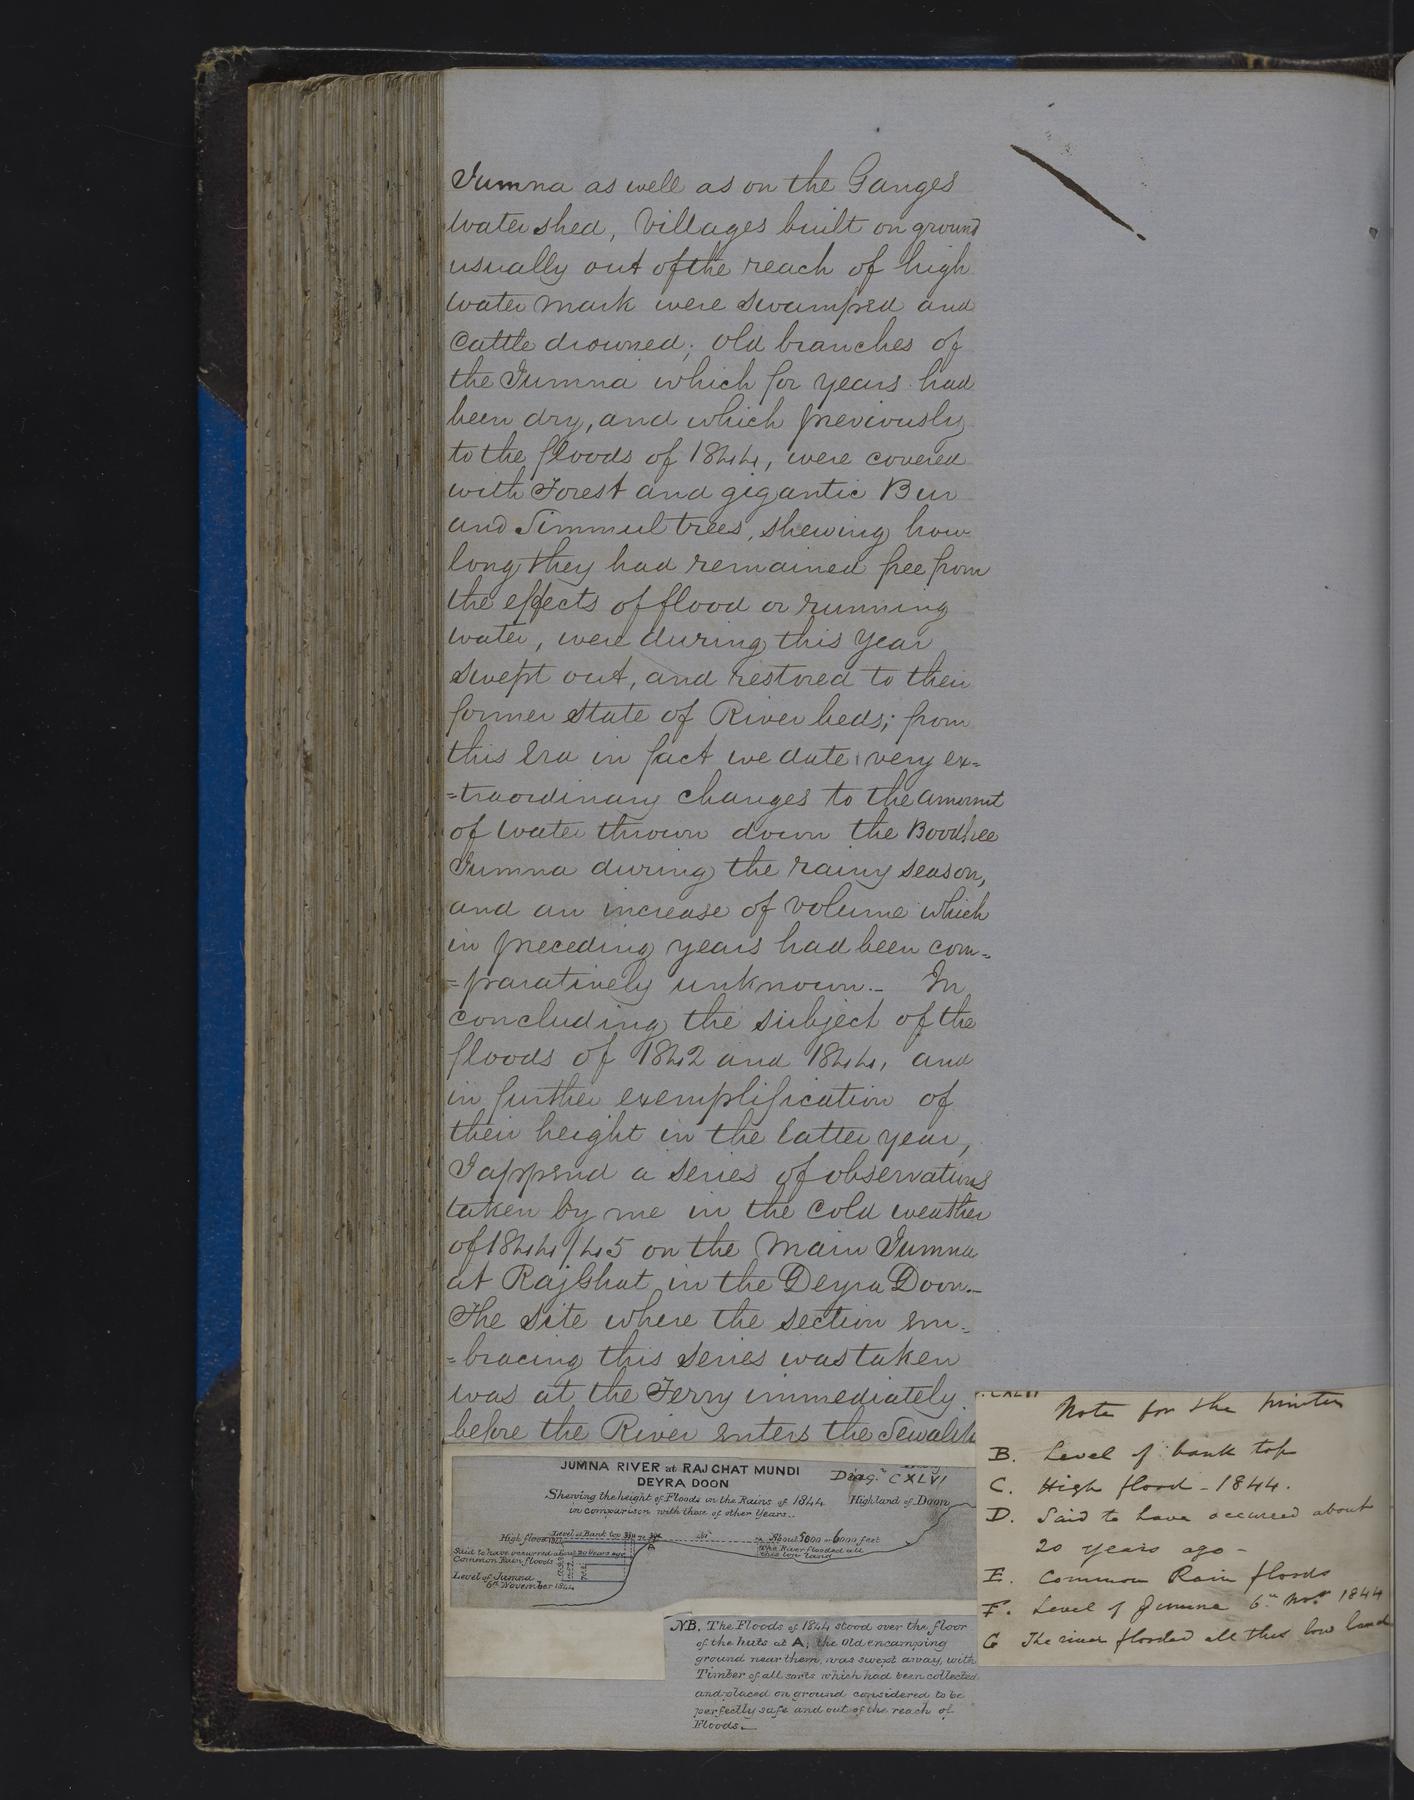 Jumna as well as on the Ganges
watershed, Villages built on ground
usually out of the reach of high
water mark were swamped and
Cattle drowned; old branches of
the Jumna which for years had
been dry, and which previously
to the floods of 1844, were covered
with Forest and gigantic Bur
and Simmul trees, shewing how
long they had remained free from
the effects of flood or running
water, were during this year
swept out, and restored to their
former state of River beds; from
this Era in fact we date very ex=
=traordinary changes to the amount
of water thrown down the Boodhee
Jumna during the rainy season,
and an increase of volume which
in preceding years had been com=
=paratively unknown._ In
concluding the subject of the
floods of 1842 and 1844, and
in further exemplification of
their height in the latter year,
I append a series of observations
taken by me in the cold weather
of 1844/45 on the Main Jumna
at RajGhat in the Deyra Doon._
The site where the section em=
=bracing this series was taken
was at the Ferry immediately
before the River enters the Sewalik
JUMNA RIVER at RAJGHAT MUNDI
DEYRA DOON
Diag. CXLVI
Shewing the height of Floods in the Rains of 1844
in comparison with those of other Years..
Highland of Doon
Level of Bank top
High flood 1844
Said to have occurred about 20 Years ago
Common Rain floods
Level of Jumna
6th November 1844
A
About 5000 or 6000 feet
The River flooded all
this low land
NB. The Floods of 1844 stood over the floor
of the huts at A; the Old encamping
ground near them, was swept away, with
Timber of all sorts which had been collected
and placed on ground considered to be
perfectly safe and out of the reach of
Floods._
CXLVI
Note for the printer
B. Level of bank top
C. High flood - 1844.
D. Said to have occurred about
20 years ago -
E. Common Rain floods
F. Level of Jumna 6th Novr 1844
G The river flooded all this low land